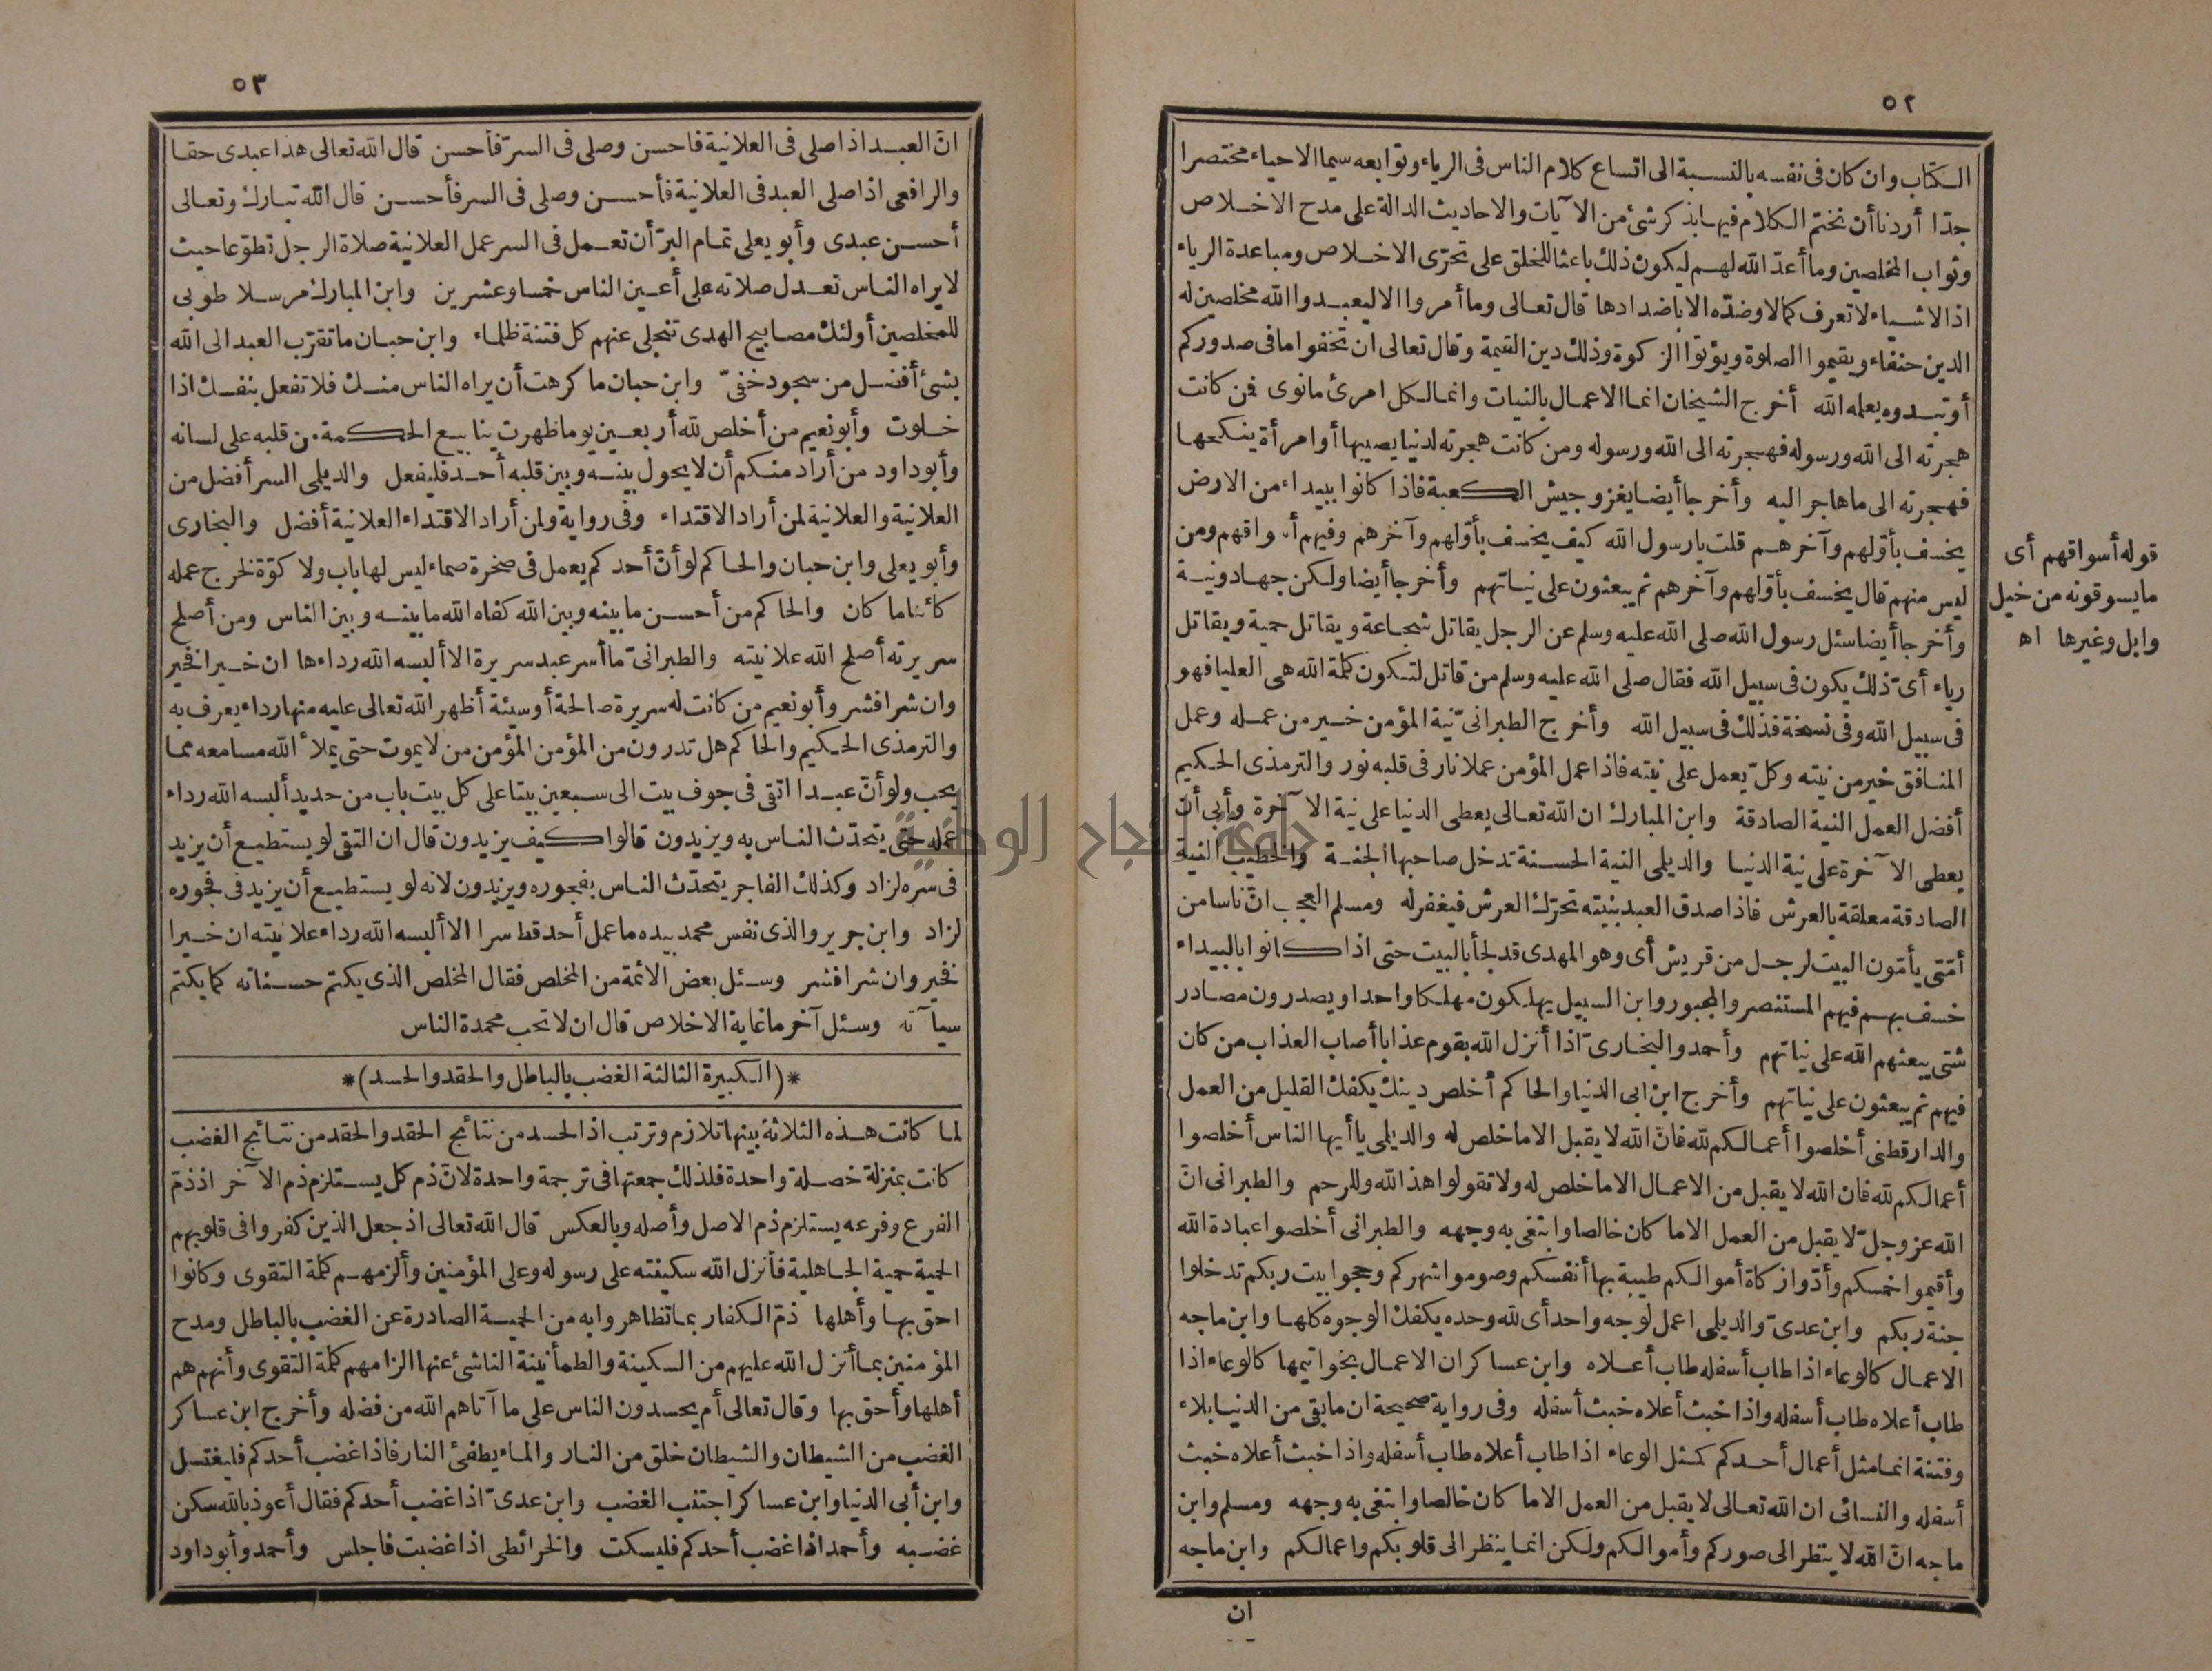 ٥٢
الكتاب وان كان فى نفسه بالنسبة الى اتساع كلام الناس فى الرياء وتوابعه سيما الاحياء مختصرا
جدّا أردنا أن نختم الكلام فيها بذكر شئ من الآيات والاحاديث الدالة على مدح الاخلاص
وثواب المخلصين وما أعدّ الله لهم ليكون ذلك باعثا للخلق على تحرّى الاخلاص ومباعدة الرياء
اذ الاشياء لا تعرف كمالا وضدّه الا باضدادها قال تعالى وما أمروا الا ليعبدوا الله مخلصين له
الدين حنفاء ويقيموا الصلوة ويؤتوا الزكوة وذلك دين القيمة وقال تعالى ان تخفوا ما فى صدوركم
أو تبدوه يعلمه الله أخرج الشيخان انما الاعمال بالنيات وانما لكل امرئ مانوى فمن كانت
هجرته الى الله ورسوله فهجرته الى الله ورسوله ومن كانت هجرته لدنيا يصيبها أو امرأة ينكحها
فهجرته الى ما هاجر اليه وأخرجا أيضا يغزو جيش الكعبة فاذا كانوا ببيداء من الارض
يخسف بأوّلهم وآخرهم قلت يا رسول الله كيف يخسف بأوّلهم وآخرهم وفيهم أسواقهم ومن
ليس منهم قال يخسف بأوّلهم وآخرهم ثم يبعثون على نياتهم وأخرجا أيضا ولكن جهاد ونية
وأخرجا أيضا سئل رسول الله صلى الله عليه وسلم عن الرجل يقاتل شجاعة ويقاتل حمية ويقاتل
رياء أىّ ذلك يكون فى سبيل الله فقال صلى الله عليه وسلم من قاتل لتكون كلمة الله هى العليا فهو
فى سبيل الله وفى نسخة فذلك فى سبيل الله وأخرج الطبرانىّ نية المؤمن خير من عمله وعمل
المنافق خير من نيته وكلّ يعمل على نيته فاذا عمل المؤمن عملا نار فى قلبه نور والترمذى الحكيم
أفضل العمل النية الصادقة وابن المبارك ان الله تعالى يعطى الدنيا على نية الآخرة وأبى أن
يعطى الآخرة على نية الدنيا والديلى النية الحسنة تدخل صاحبها الجنة والخطيب النية
الصادقة معلقة بالعرش فاذا صدق العبد بنيته تحرّك العرش فيغفر له ومسلم العجب انّ ناسا من
أمّتى يأمّون البيت لرجل من قريش أى وهو المهدى قد لجأ بالبيت حتى اذا كانوا بالبيداء
خسف بهم فيهم المستنصر والمجبور وابن السبيل يهلكون مهلكا واحدا ويصدرون مصادر
شتى يبعثهم الله على نياتهم وأحمد والبخارىّ اذا أنزل الله بقوم عذابا أصاب العذاب من كان
فيهم ثم يبعثون على نياتهم وأخرج ابن ابى الدنيا والحاكم أخلص دينك يكفك القليل من العمل
والدارقطنى أخلصوا أعمالكم لله فانّ الله لا يقبل الا ما خلص له والديلى يا أيها الناس أخلصوا
أعمالكم لله فان الله لا يقبل من الاعمال الا ما خلص له ولا تقولوا هذا لله وللرحم والطبرانى انّ
الله عز وجلّ لا يقبل من العمل الا ما كان خالصا وابتغى به وجهه والطبرانى أخلصوا عبادة الله
وأقيموا خمسكم وأدّوا زكاة أموالكم طيبة بها أنفسكم وصوموا شهركم وحجوا بيت ربكم تدخلوا
جنة ربكم وابن عدىّ والديلى اعمل لوجه واحد أى لله وحده يكفك الوجوه كلها وابن ماجه
الاعمال كالوعاء اذا طاب أسفله طاب أعلاه وابن عساكر ان الاعمال بخواتيمها كالوعاء اذا
طاب أعلاه طاب أسفله واذا خبث أعلاه خبث أسفله وفى رواية صحيحة ان ما بقى من الدنيا بلاء
وفتنة انما مثل أعمال أحدكم كمثل الوعاء اذا طاب أعلاه طاب أسفله واذا خبث أعلاه خبث
أسفله والنسائى ان الله تعالى لا يقبل من العمل الا ما كان خالصا وابتغى به وجهه ومسلم وابن
ماجه انّ الله لا ينظر الى صوركم وأموالكم ولكن انما ينظر الى قلوبكم واعمالكم وابن ماجه
ان
قوله أسواقهم أى
ما يسوقونه من خيل
وابل وغيرها اه
٥٣
انّ العبد اذا صلى فى العلانية فاحسن وصلى فى السرّ فأحسن قال الله تعالى هذا عبدى حقا
والرافعى اذا صلى العبد فى العلانية فأحسن وصلى فى السر فأحسن قال الله تبارك وتعالى
أحسن عبدى وأبو يعلى تمام البرّ أن تعمل فى السر عمل العلانية صلاة الرجل تطوّعا حيث
لا يراه الناس تعدل صلاته على أعين الناس خمسا وعشرين وابن المبارك مرسلا طوبى
للمخلصين أولئك مصابيح الهدى تنجلى عنهم كل فتنة ظلماء وابن حبان ما تقرّب العبد الى الله
بشئ أفضل من سجود خفىّ وابن حبان ما كرهت أن يراه الناس منك فلا تفعل بنفسك اذا
خلوت وأبو نعيم من أخلص لله أربعين يوما ظهرت ينابيع الحكمة من قلبه على لسانه
وأبو داود من أراد منكم أن لا يحول بينه وبين قلبه أحد فليفعل والديلى السر أفضل من
العلانية والعلانية لمن أراد الاقتداء وفى رواية ولمن أراد الاقتداء العلانية أفضل والبخارى
وأبو يعلى وابن حبان والحاكم لو أنّ أحدكم يعمل فى صخرة صماء ليس لها باب ولا كوّة لخرج عمله
كائنا ما كان والحاكم من أحسن ما بينه وبين الله كفاه الله ما بينه وبين الناس ومن أصلح
سريرته أصلح الله علانيته والطبرانىّ ما أسر عبد سريرة الا ألبسه الله رداءها ان خيرا فخير
وان شرا فشر وأبو نعيم من كانت له سريرة صالحة أو سيئة أظهر الله تعالى عليه منها رداء يعرف به
والترمذى الحكيم والحاكم هل تدرون من المؤمن المؤمن من لا يموت حتى يملأ الله مسامعه مما
يحب ولو أنّ عبدا اتقى فى جوف بيت الى سبعين بيتا على كل بيت باب من حديد ألبسه الله رداء
عمله حتى يتحدّث الناس به ويزيدون قالوا كيف يزيدون قال ان التقى لو يستطيع أن يزيد
فى سره لزاد وكذلك الفاجر يتحدّث الناس بفجوره ويزيدون لانه لو يستطيع أن يزيد فى فجوره
لزاد وابن جرير والذى نفس محمد بيده ما عمل أحد قط سرا الا ألبسه الله رداء علانيته ان خيرا
فخير وان شرا فشر وسئل بعض الائمة من المخلص فقال المخلص الذى يكتم حسناته كما يكتم
سيآته وسئل آخر ما غاية الاخلاص قال ان لا تحب محمدة الناس
*(الكبيرة الثالثة الغضب بالباطل والحقد والحسد)*
لما كانت هذه الثلاثة بينها تلازم وترتب اذ الحسد من نتائج الحقد والحقد من نتائج الغضب
كانت بمنزلة خصلة واحدة فلذلك جمعتها فى ترجمة واحدة لانّ ذم كل يستلزم ذم الآخر اذ ذمّ
الفرع وفرعه يستلزم ذم الاصل وأصله وبالعكس قال الله تعالى اذ جعل الذين كفروا فى قلوبهم
الحمية حمية الجاهلية فأنزل الله سكينته على رسوله وعلى المؤمنين وألزمهم كلمة التقوى وكانوا
احق بها وأهلها ذمّ الكفار بما تظاهروا به من الحمية الصادرة عن الغضب بالباطل ومدح
المؤمنين بما أنزل الله عليهم من السكينة والطمأنينة الناشئ عنها الزامهم كلمة التقوى وأنهم هم
أهلها وأحق بها وقال تعالى أم يحسدون الناس على ما آتاهم الله من فضله وأخرج ابن عساكر
الغضب من الشيطان والشيطان خلق من النار والماء يطفئ النار فاذا غضب أحدكم فليغتسل
وابن أبى الدنيا وابن عساكر اجتنب الغضب وابن عدىّ اذا غضب أحدكم فقال أعوذ بالله سكن
غضبه وأحمد اذا غضب أحدكم فليسكت والخرائطى اذا غضبت فاجلس وأحمد وأبو داود
جامعة النجاح الوطنية